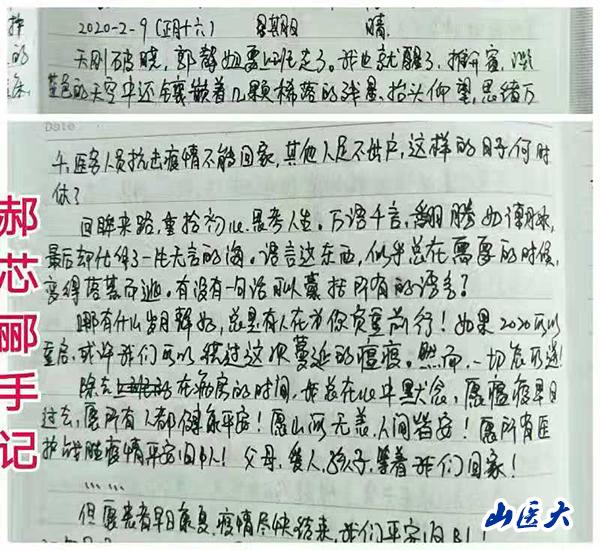 2020-2-9(正月十六) 星期日 晴
天刚破晓,郭静如要回班走了。我也就醒了,拥窗,
蓝色的天空中还镶嵌着几颗稀落的残星,抬头仰望,思绪万
千,医务人员抗击疫情不能回家,其他人足不出户,这样的日子何时
休?
回眸来路,重拾初心,思考人生。万语千言,翻腾如
最后却化得了一片无言的海。语言这东西,似乎总在需要的时候,
变得落荒而逃。有没有一句话可以囊括所有的语言?
哪有什么岁月静好,总是有人在为你负重前行!如果2020可以
重启,或许我们可以躲过这次蔓延的瘟疫。然而,一切皆可逝!
除去 在病房的时间,我总在心中默念,愿瘟疫早日
过去,愿所有人都健康平安!愿山河无恙,人间皆安!愿所有医
护战胜疫情平安归队!父母,爱人,孩子,等着我们回家!
……
但愿患者早日康复,疫情尽快结束,我们平安归队!
郝芯郦手记
山医大
Date